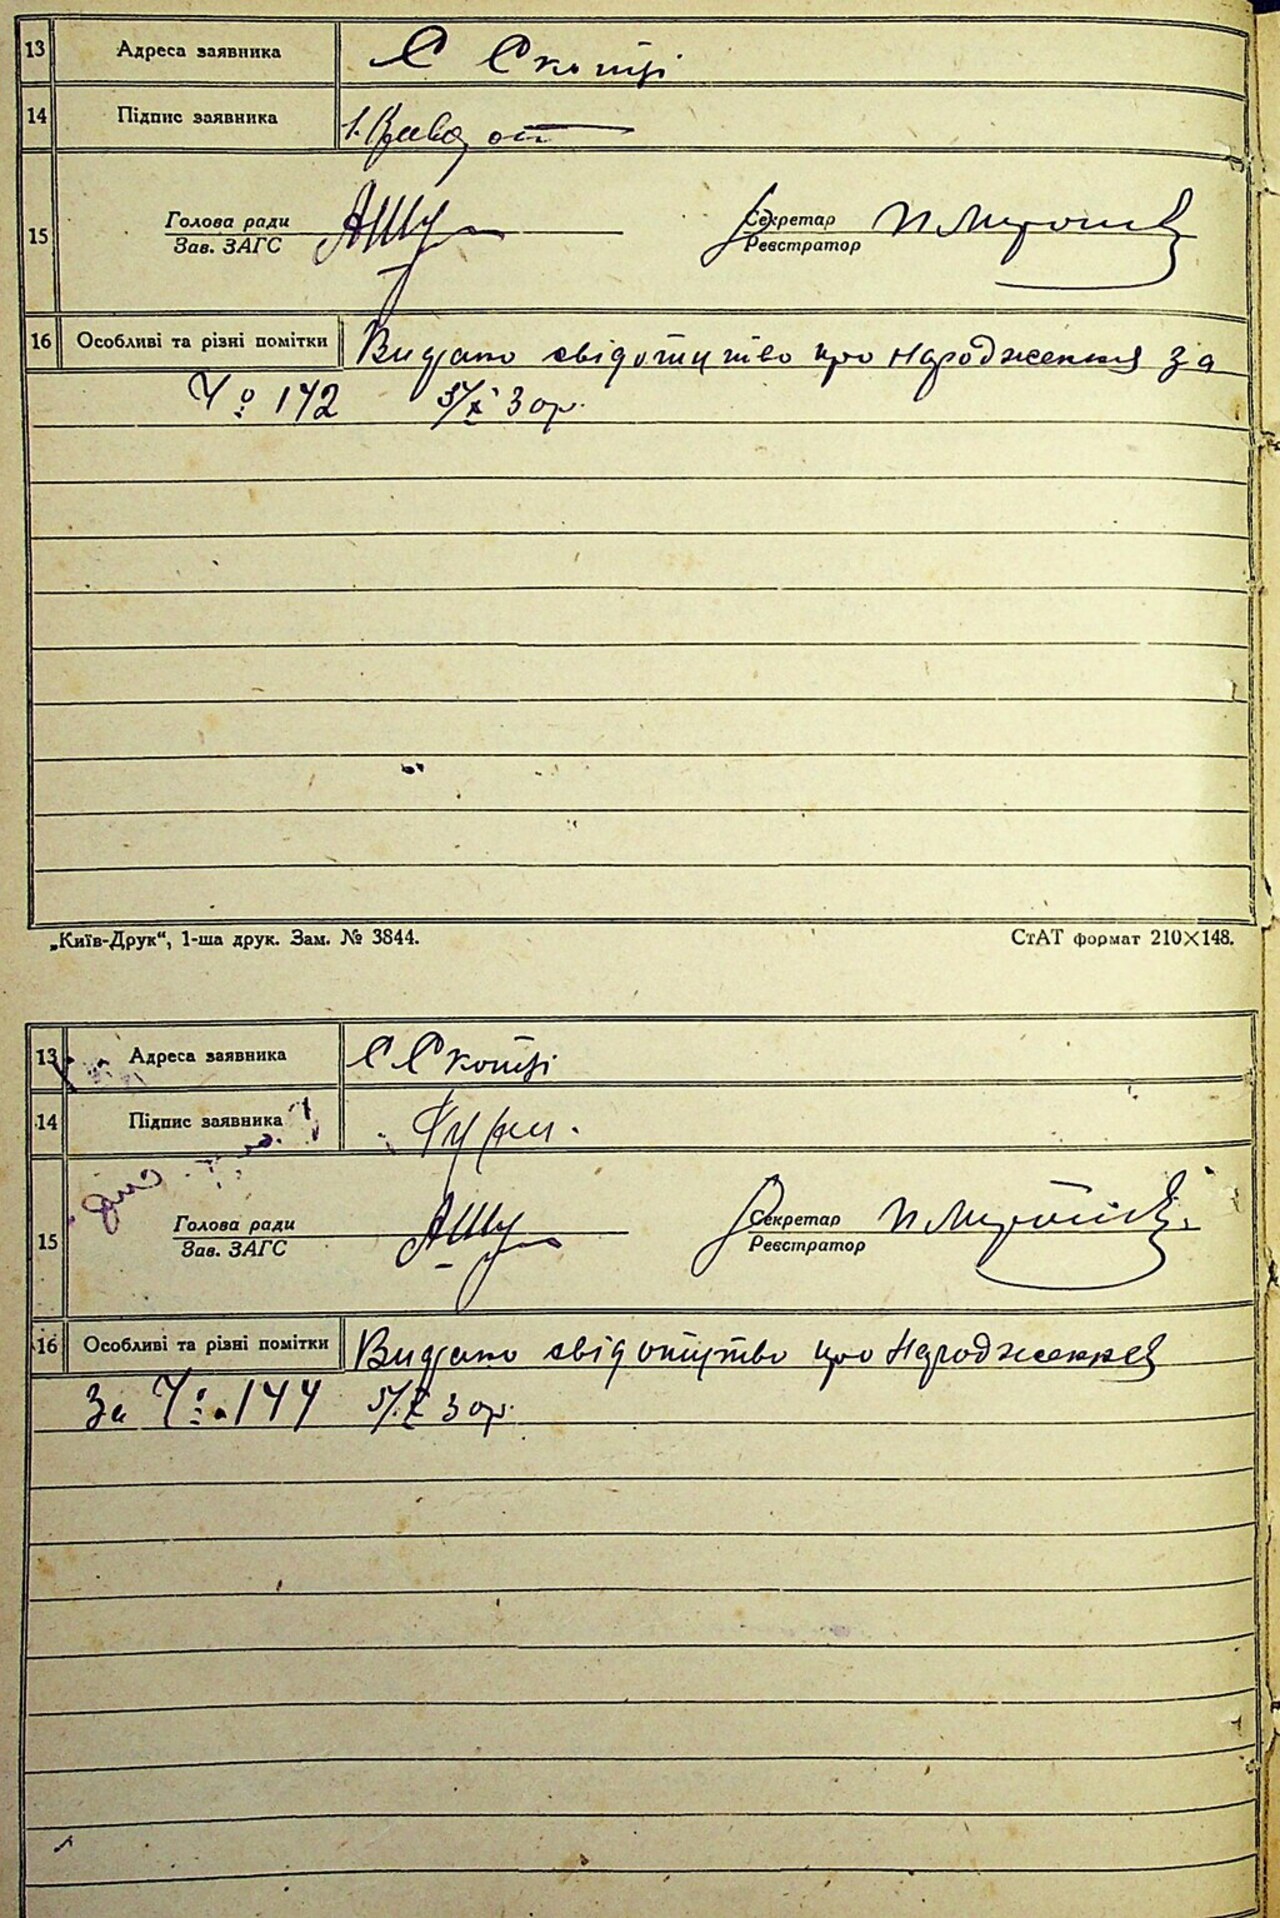 13 Адреса заявника С Скотці
14 Підпис заявника
15 Голова ради Секретар
Зав. ЗАГС Реєстратор
16 Особливі та різні помітки Видано свідотцтво про народження за
Ч о 142 5/X 30 р.
„Київ-Друк“, 1-ша друк. Зам. № 3844. СтАТ формат 210×148.
13 Адреса заявника С Скотці
14 Підпис заявника
15 Голова ради Секретар
Зав. ЗАГС Реєстратор
16 Особливі та різні помітки Видано свідотцтво про народження
За Ч о 144 5/X 30 р.